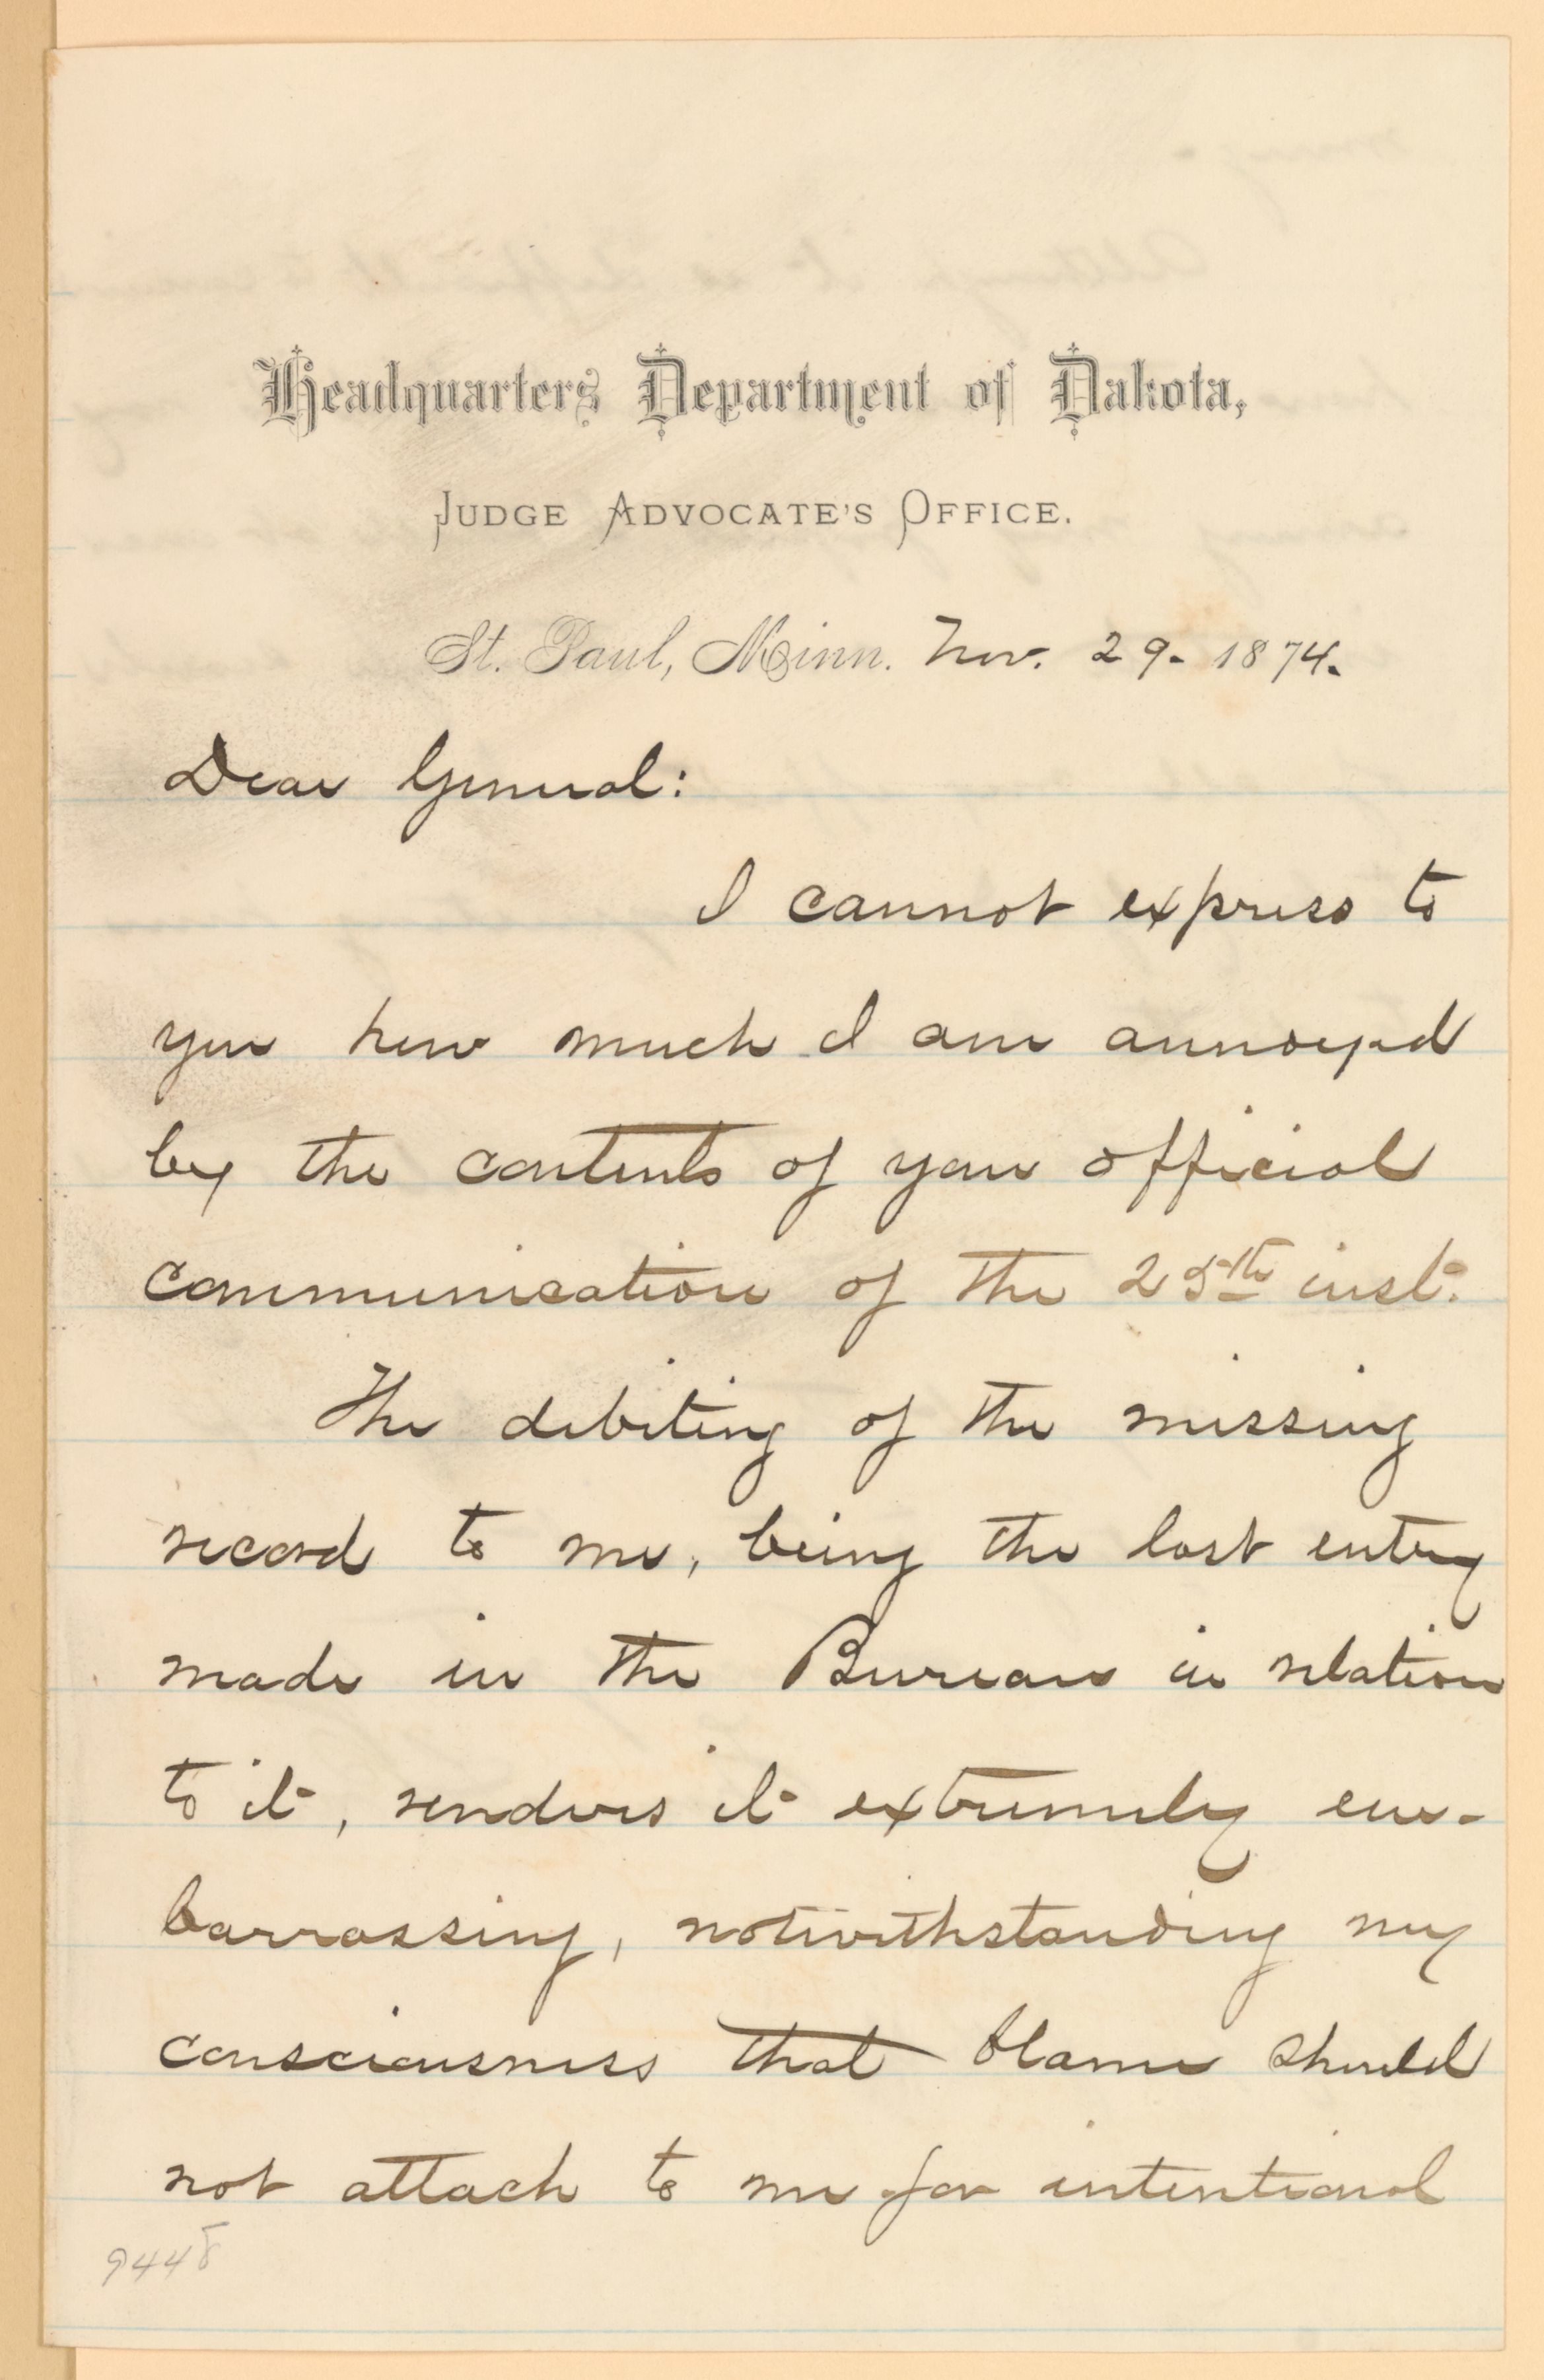 Headquarters Department of Dakota,
JUDGE ADVOCATE'S OFFICE.
St. Paul, Minn. Nov. 29. 1874.
Dear General:
I cannot express to
you how much I am annoyed
by the contents of your official
communication of the 25th inst.
The debiting of the missing
record to me, being the last entry
made in the Bureau in relation
to it, renders it extremely em-
barrassing, notwithstanding my
consciousness that blame should
not attach to me for intentional
9448